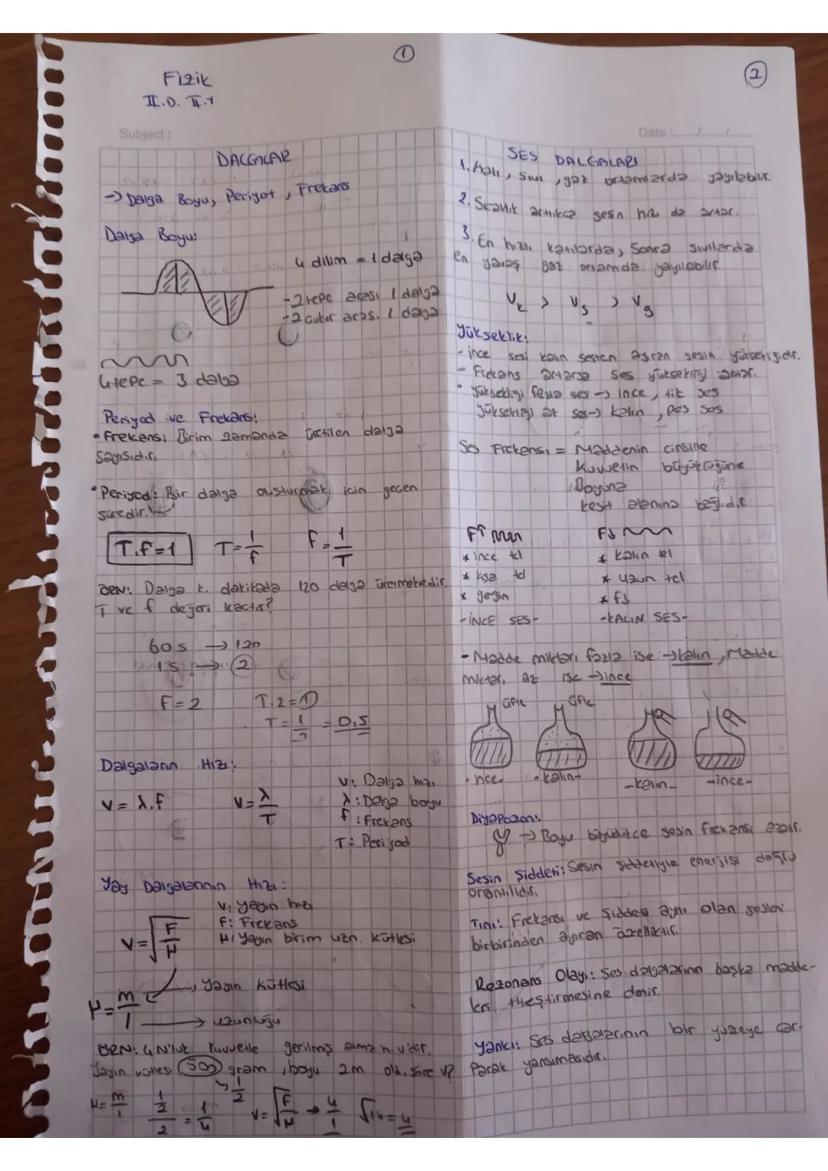 1
Fizik
II.D. II.Y
Subject:
DALGALAR
→ Dalga Boyu, Periyot, Frekans
Dalga Boyu:
4 dilim = 1 dalga
- 2 tepe arası 1 dalga
- 2 çukur aras. 1 dalga
4 tepe = 3 dalga
Periyod ve Frekans:
• Frekans: Birim zamanda üretilen dalga
sayısıdır.
• Periyod: Bir dalga oluşturmak için geçen
süredir.
T.f=1 T=1/f f=1/T
ÖRN: Dalga k. dakikada 120 dalga üretmektedir.
T ve f değeri kaçtır?
60s → 120
1s → 2
F=2 T.2=1
T=1/2=0,5
Dalgaların Hızı:
V=λ.f V=λ/T
V: Dalga hızı
λ: Dalga boyu
f: Frekans
T: Periyod
Yay Dalgalarının Hızı:
V=√F/μ
V: Yayın hızı
F: Frekans
μ: Yayın birim uzn. kütlesi
μ=m/l → Yayın kütlesi
→ uzunluğu
ÖRN: 4 N'luk kuvvetle gerilmiş
Yayın kütlesi 500 gram, boyu 2m V?
1/2
μ=m/l 1/2/2 = 1/4 V=√F/μ → 4/1 √16=4
2
Date :....../....../......
SES DALGALARI
1. Katı, sıvı, gaz ortamlarda yayılabilir.
2. Sıcaklık arttıkça sesin hızı da artar.
3. En hızlı katılarda, sonra sıvılarda
en yavaş gaz ortamda yayılabilir.
Vk > Vs > Vg
Yükseklik:
- ince sesi kalın sesten ayıran sesin yüksekliğidir.
- Frekans artarsa ses yüksekliği artar.
- Yüksekliği fazla ses → ince, tiz ses
Yüksekliği az ses → kalın, pes ses
Ses Frekansı = Maddenin cinsine
Kuvvetin büyüklüğüne
Boyuna
kesit alanına bağlıdır
F↑ F↓
* ince tel * kalın tel
* kısa tel * uzun tel
* gergin * f↓
-İNCE SES- -KALIN SES-
- Madde miktarı fazla ise → kalın, Madde
miktar. az ise → ince
-ince- -kalın- -kalın- -ince-
Diyapazon:
→ Boyu büyüdükçe sesin frekansı azalır.
Sesin Şiddeti: Sesin şiddetiyle enerjisi doğru
orantılıdır.
Tını: Frekansı ve şiddeti aynı olan sesleri
birbirinden ayıran özelliktir.
Rezonans Olayı: Ses dalgalarının başka madde-
leri titreştirmesine denir.
Yankı: Ses dalgalarının bir yüzeye çar-
parak yansımasıdır.